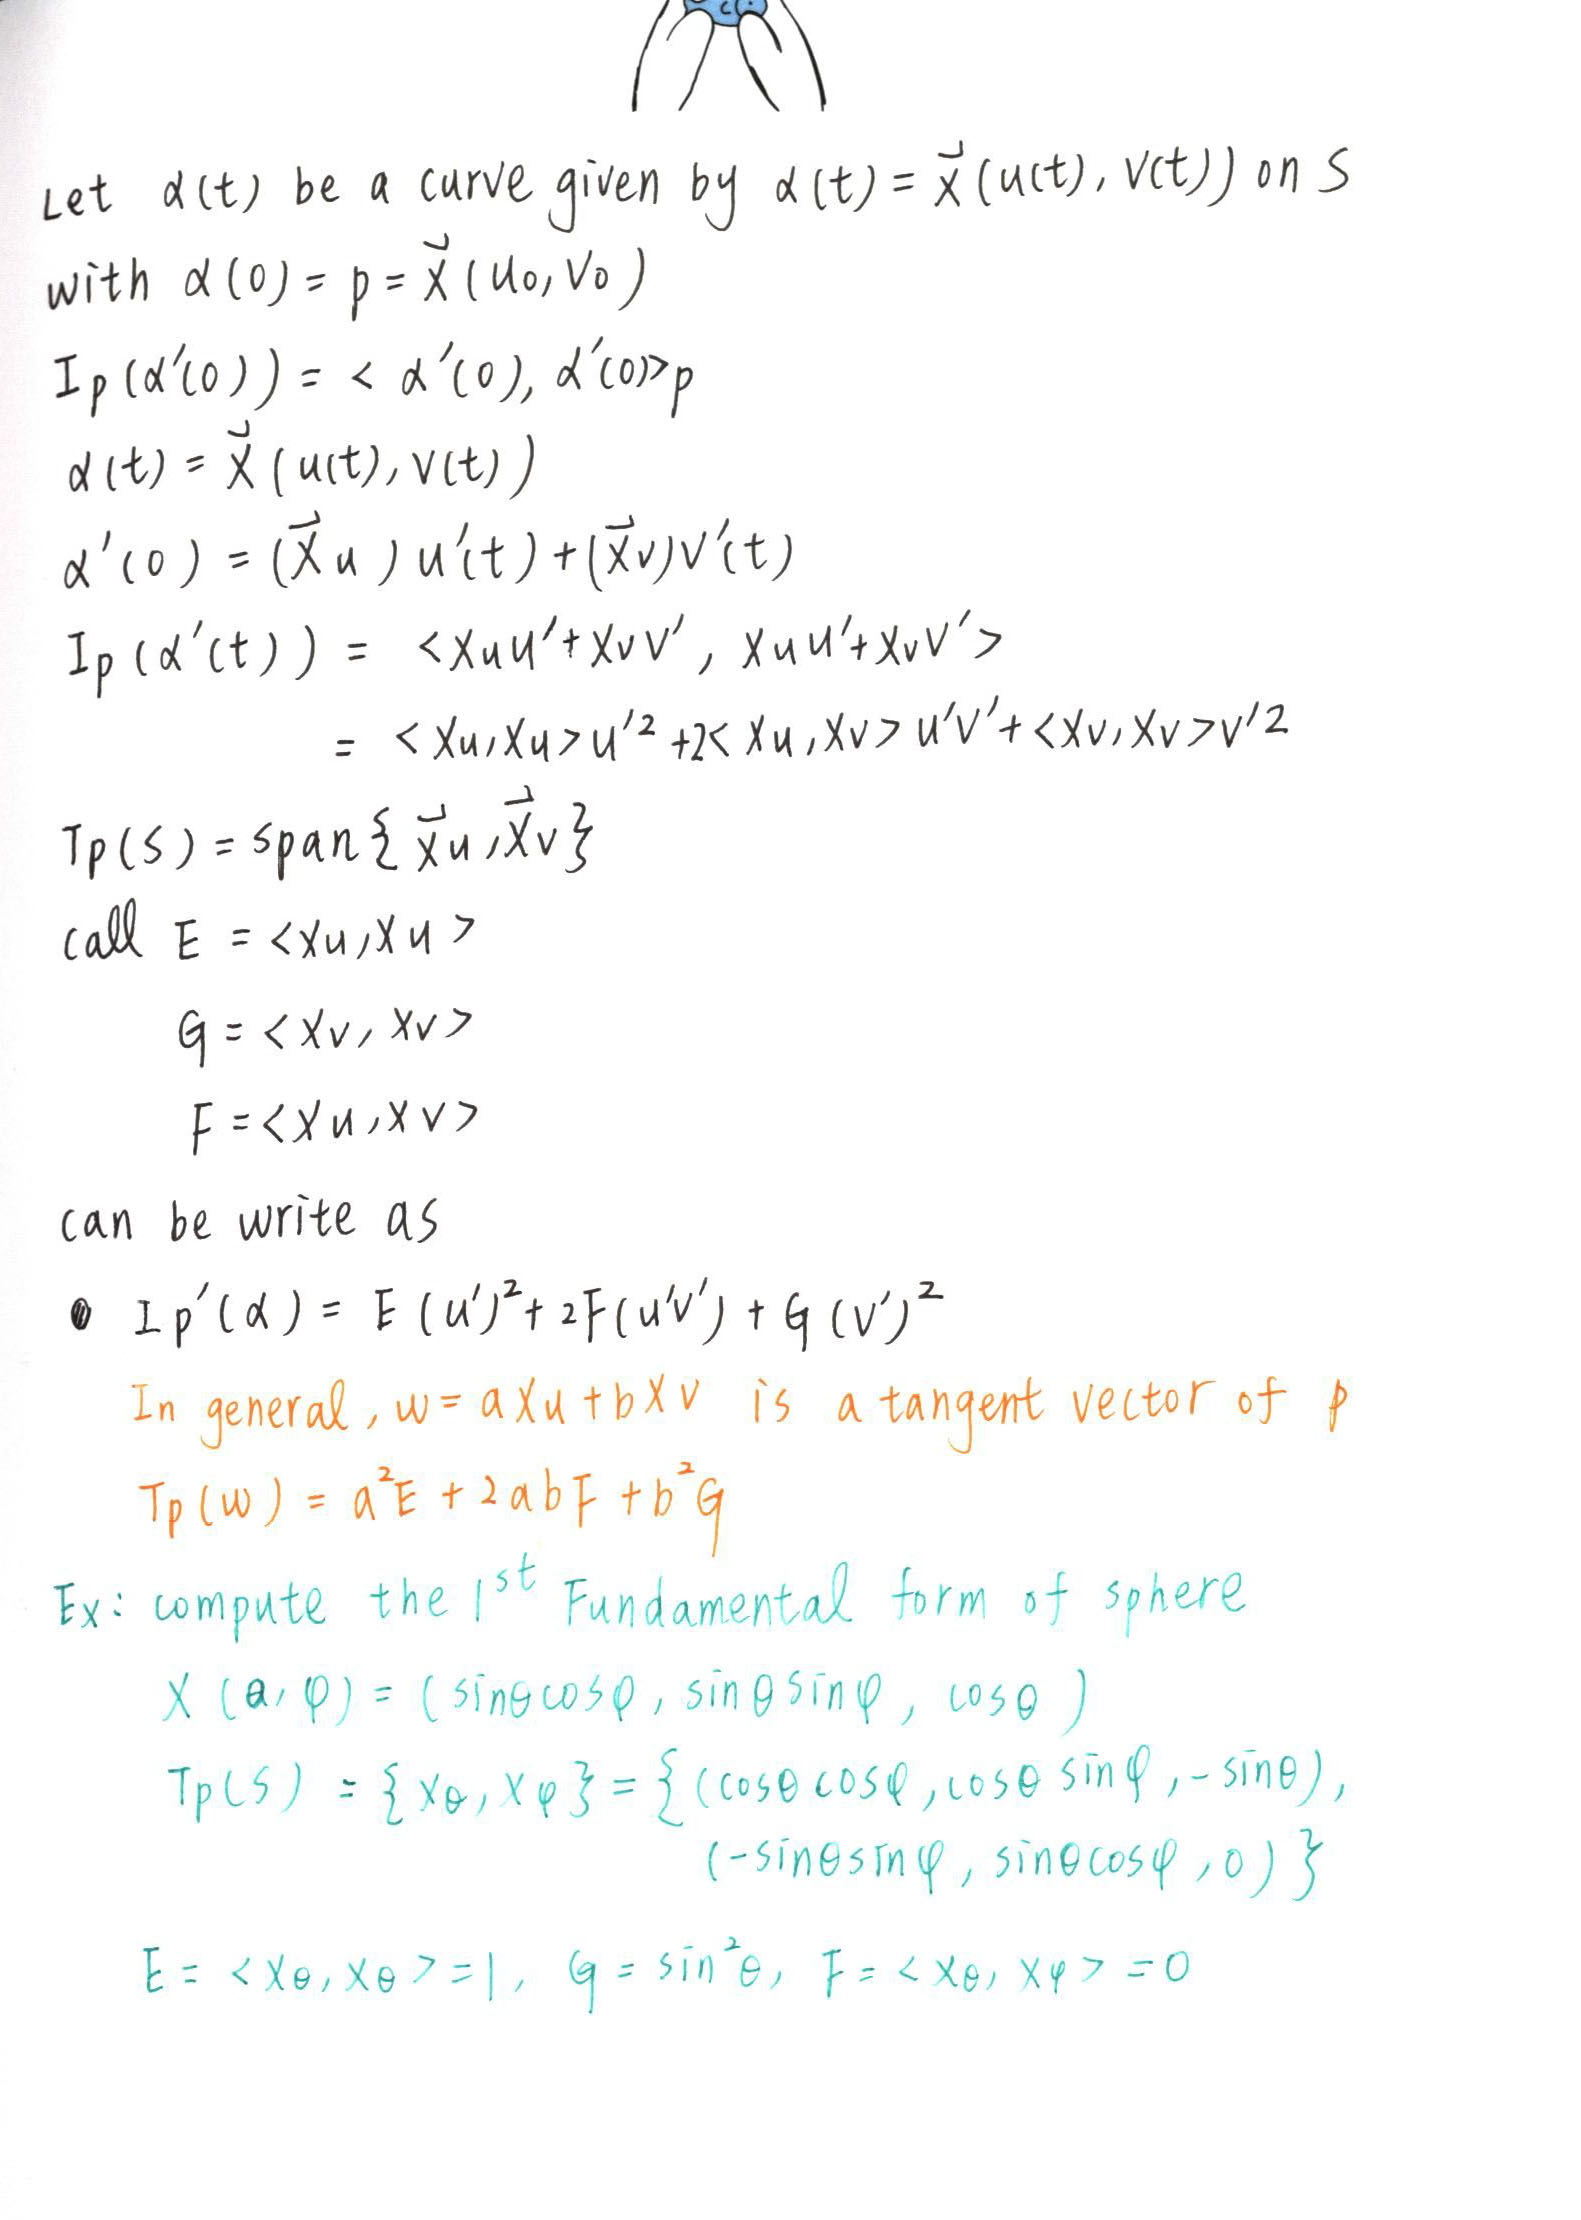 Let α(t) be a curve given by α(t) = x⃗(u(t), v(t)) on S
with α(0) = p = x⃗(u₀, v₀)
Ip(α'(0)) = < α'(0), α'(0)>p
α(t) = x⃗(u(t), v(t))
α'(0) = (x⃗u)u'(t) + (x⃗v)v'(t)
Ip(α'(t)) = <Xuu'+Xvv', Xuu'+Xvv'>
= <Xu,Xu>u'² +2<Xu,Xv>u'v'+<Xv,Xv>v'2
Tp(S) = span{x⃗u, x⃗v}
call E = <Xu,Xu>
G = <Xv, Xv>
F = <Xu,Xv>
can be write as
• Ip'(α) = E(u')² + 2F(u'v') + G(v')²
In general, w = aXu + bXv is a tangent vector of p
Tp(w) = a²E + 2abF + b²G
Ex: compute the 1st Fundamental form of sphere
X(θ, φ) = (sinθcosφ, sinθsinφ, cosθ)
Tp(S) = {Xθ, Xφ} = {(cosθcosφ, cosθsinφ, -sinθ),
(-sinθsinφ, sinθcosφ, 0)}
E = <Xθ, Xθ> = 1, G = sin²θ, F = <Xθ, Xφ> = 0